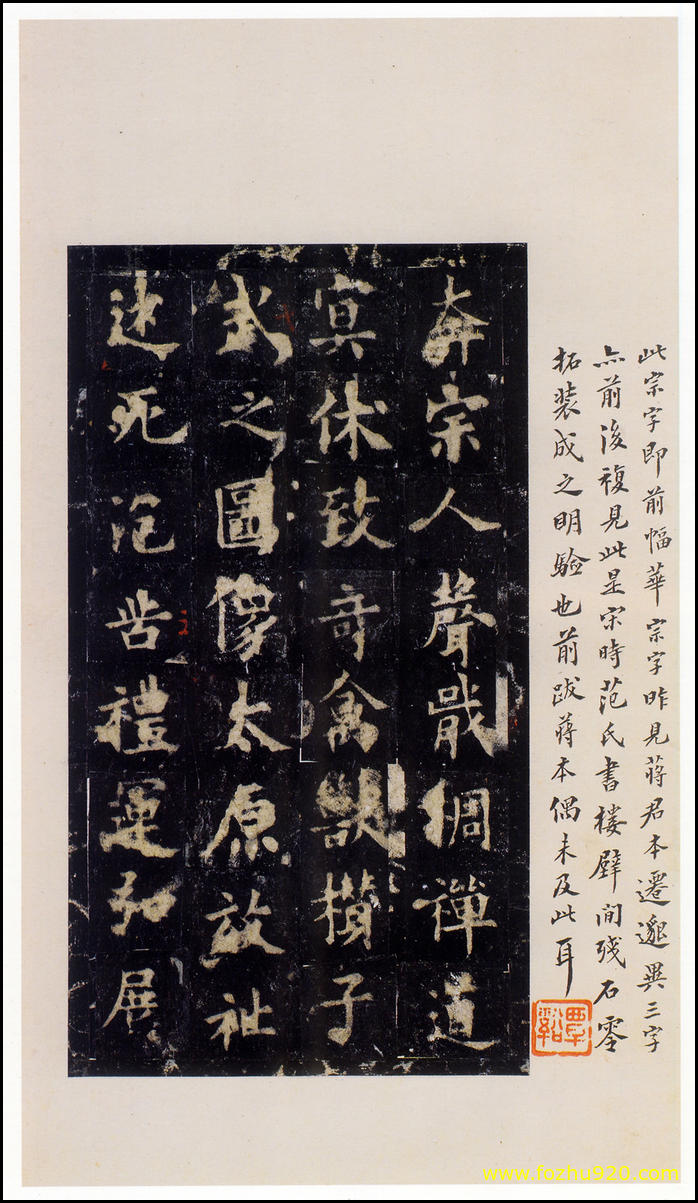 此宗字即前幅華宗字昨見蔣君本遷邈異三字
亦前後複見此是宋時范氏書樓壁間殘石零
拓裝成之明驗也前跋蔣本偶未及此耳
覃谿
奔宗人聲戢綢禪道
寘休致奇禽獸欑子
式之圖像太原放祉
述死泥呰禮運劫展
www.fozhu920.com